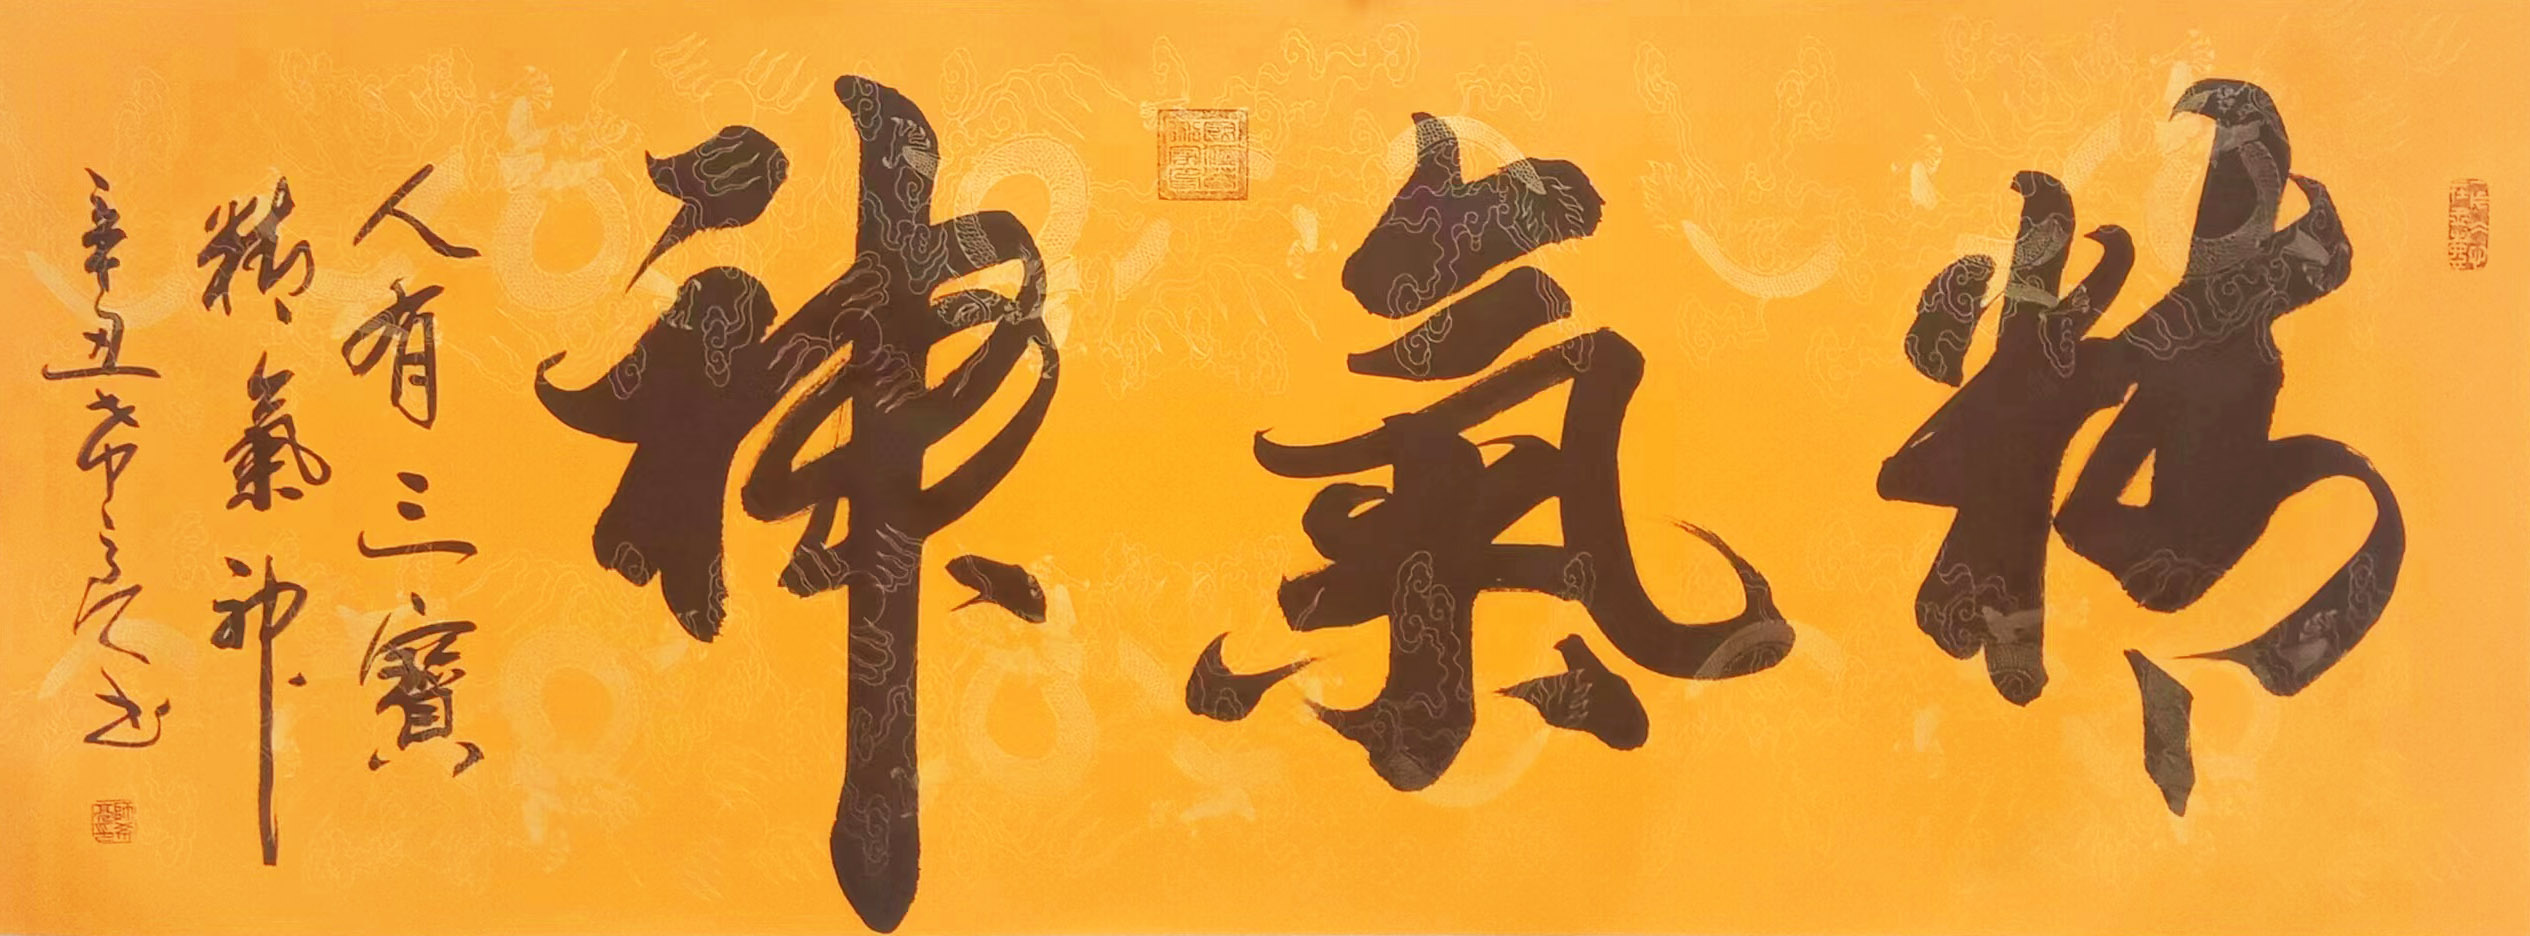 精氣神
人有三寶
精氣神
辛丑希亮書